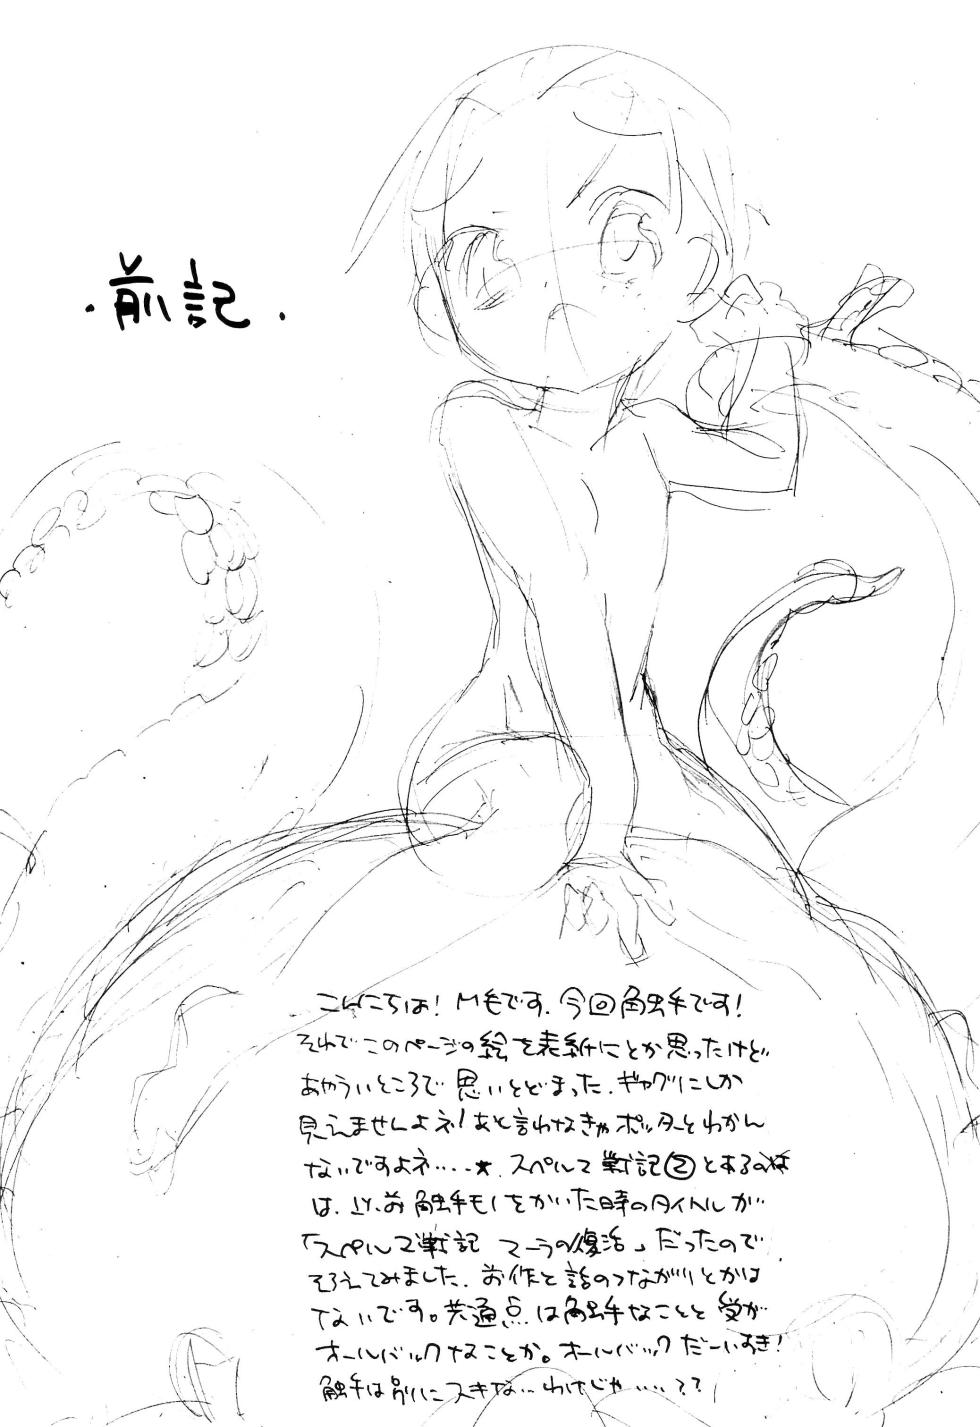 ・前記・
こんにちは！M毛です。今回触手です！
それでこのページの絵を表紙にとか思ったけど
あやういところで思いとどまった。ギャグにしか
見えませんよネ！あと言わなきゃポッターとわかん
ないですよネ……★。スペルマ戦記②とあるのは
は、以前触手モノをかいた時のタイトルが
「スペルマ戦記 マーラの復活」だったので
そろえてみました。前作と話のつながりとかは
ないです。共通点は触手なことと受が
オールバックなことか。オールバックだーいすき！
触手は別にスキな…わけじゃ……？？